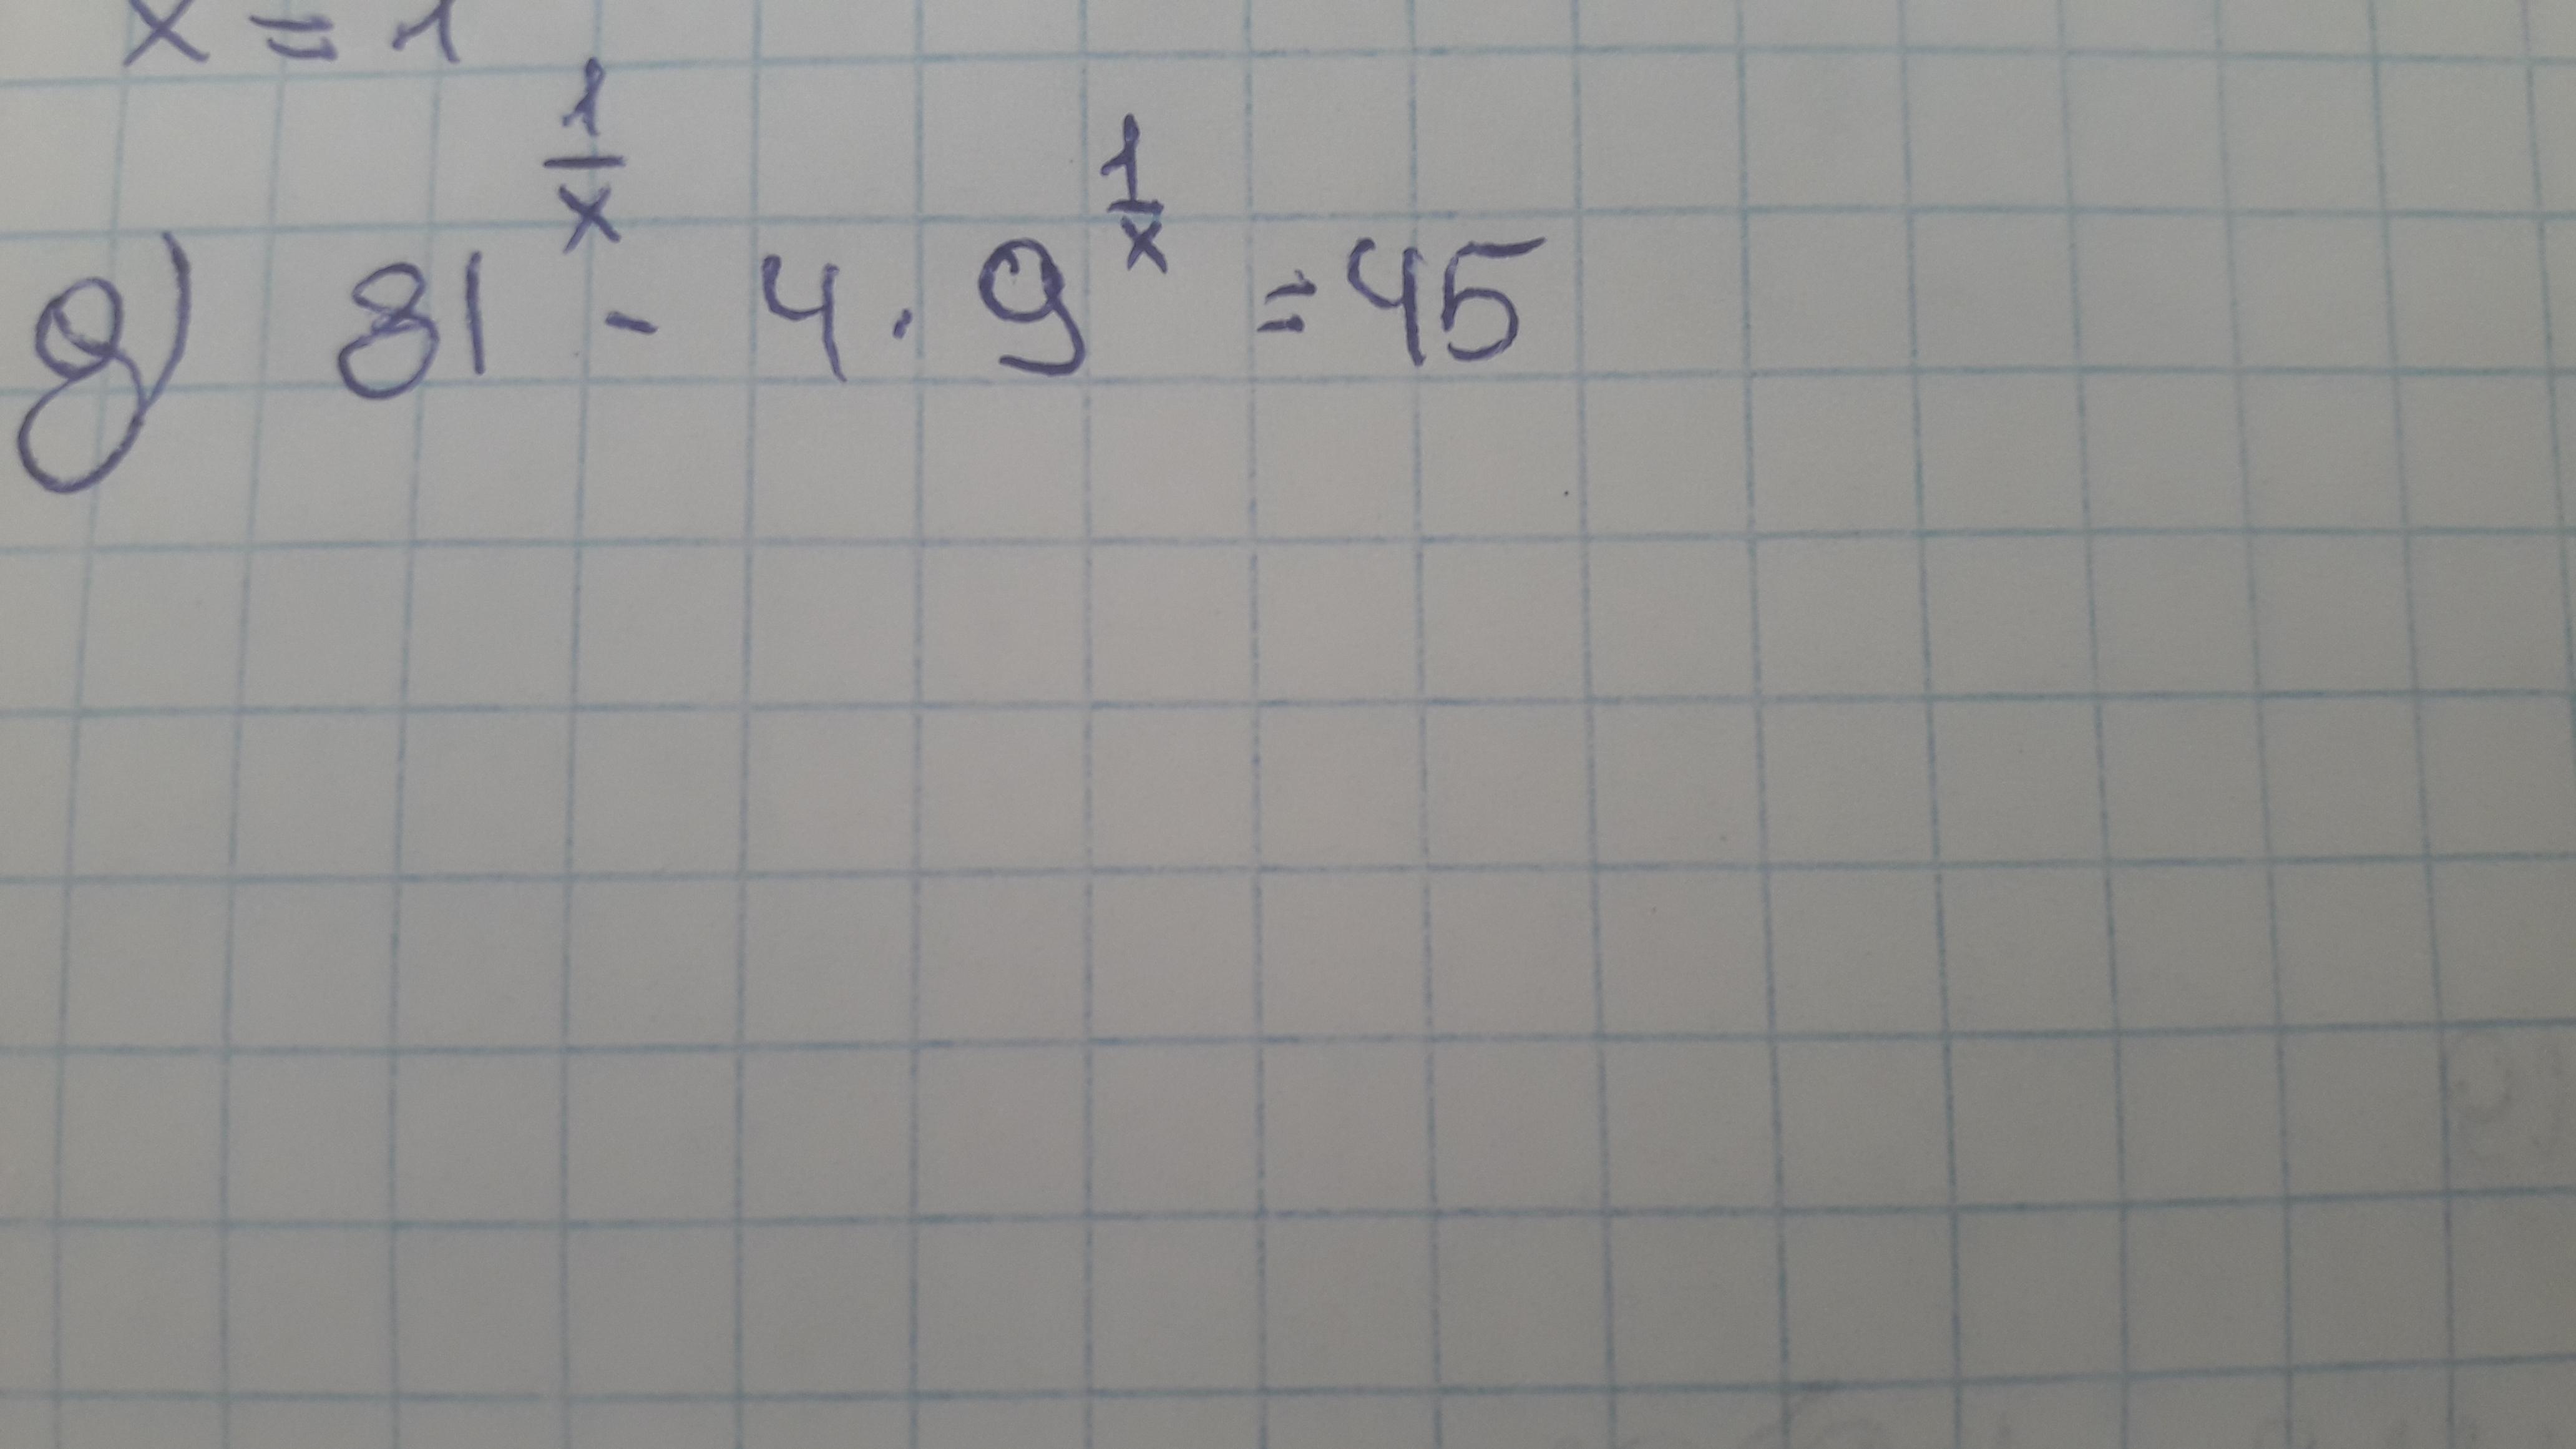 x = 1
д) 81^(1/x) - 4 · 9^(1/x) = 45